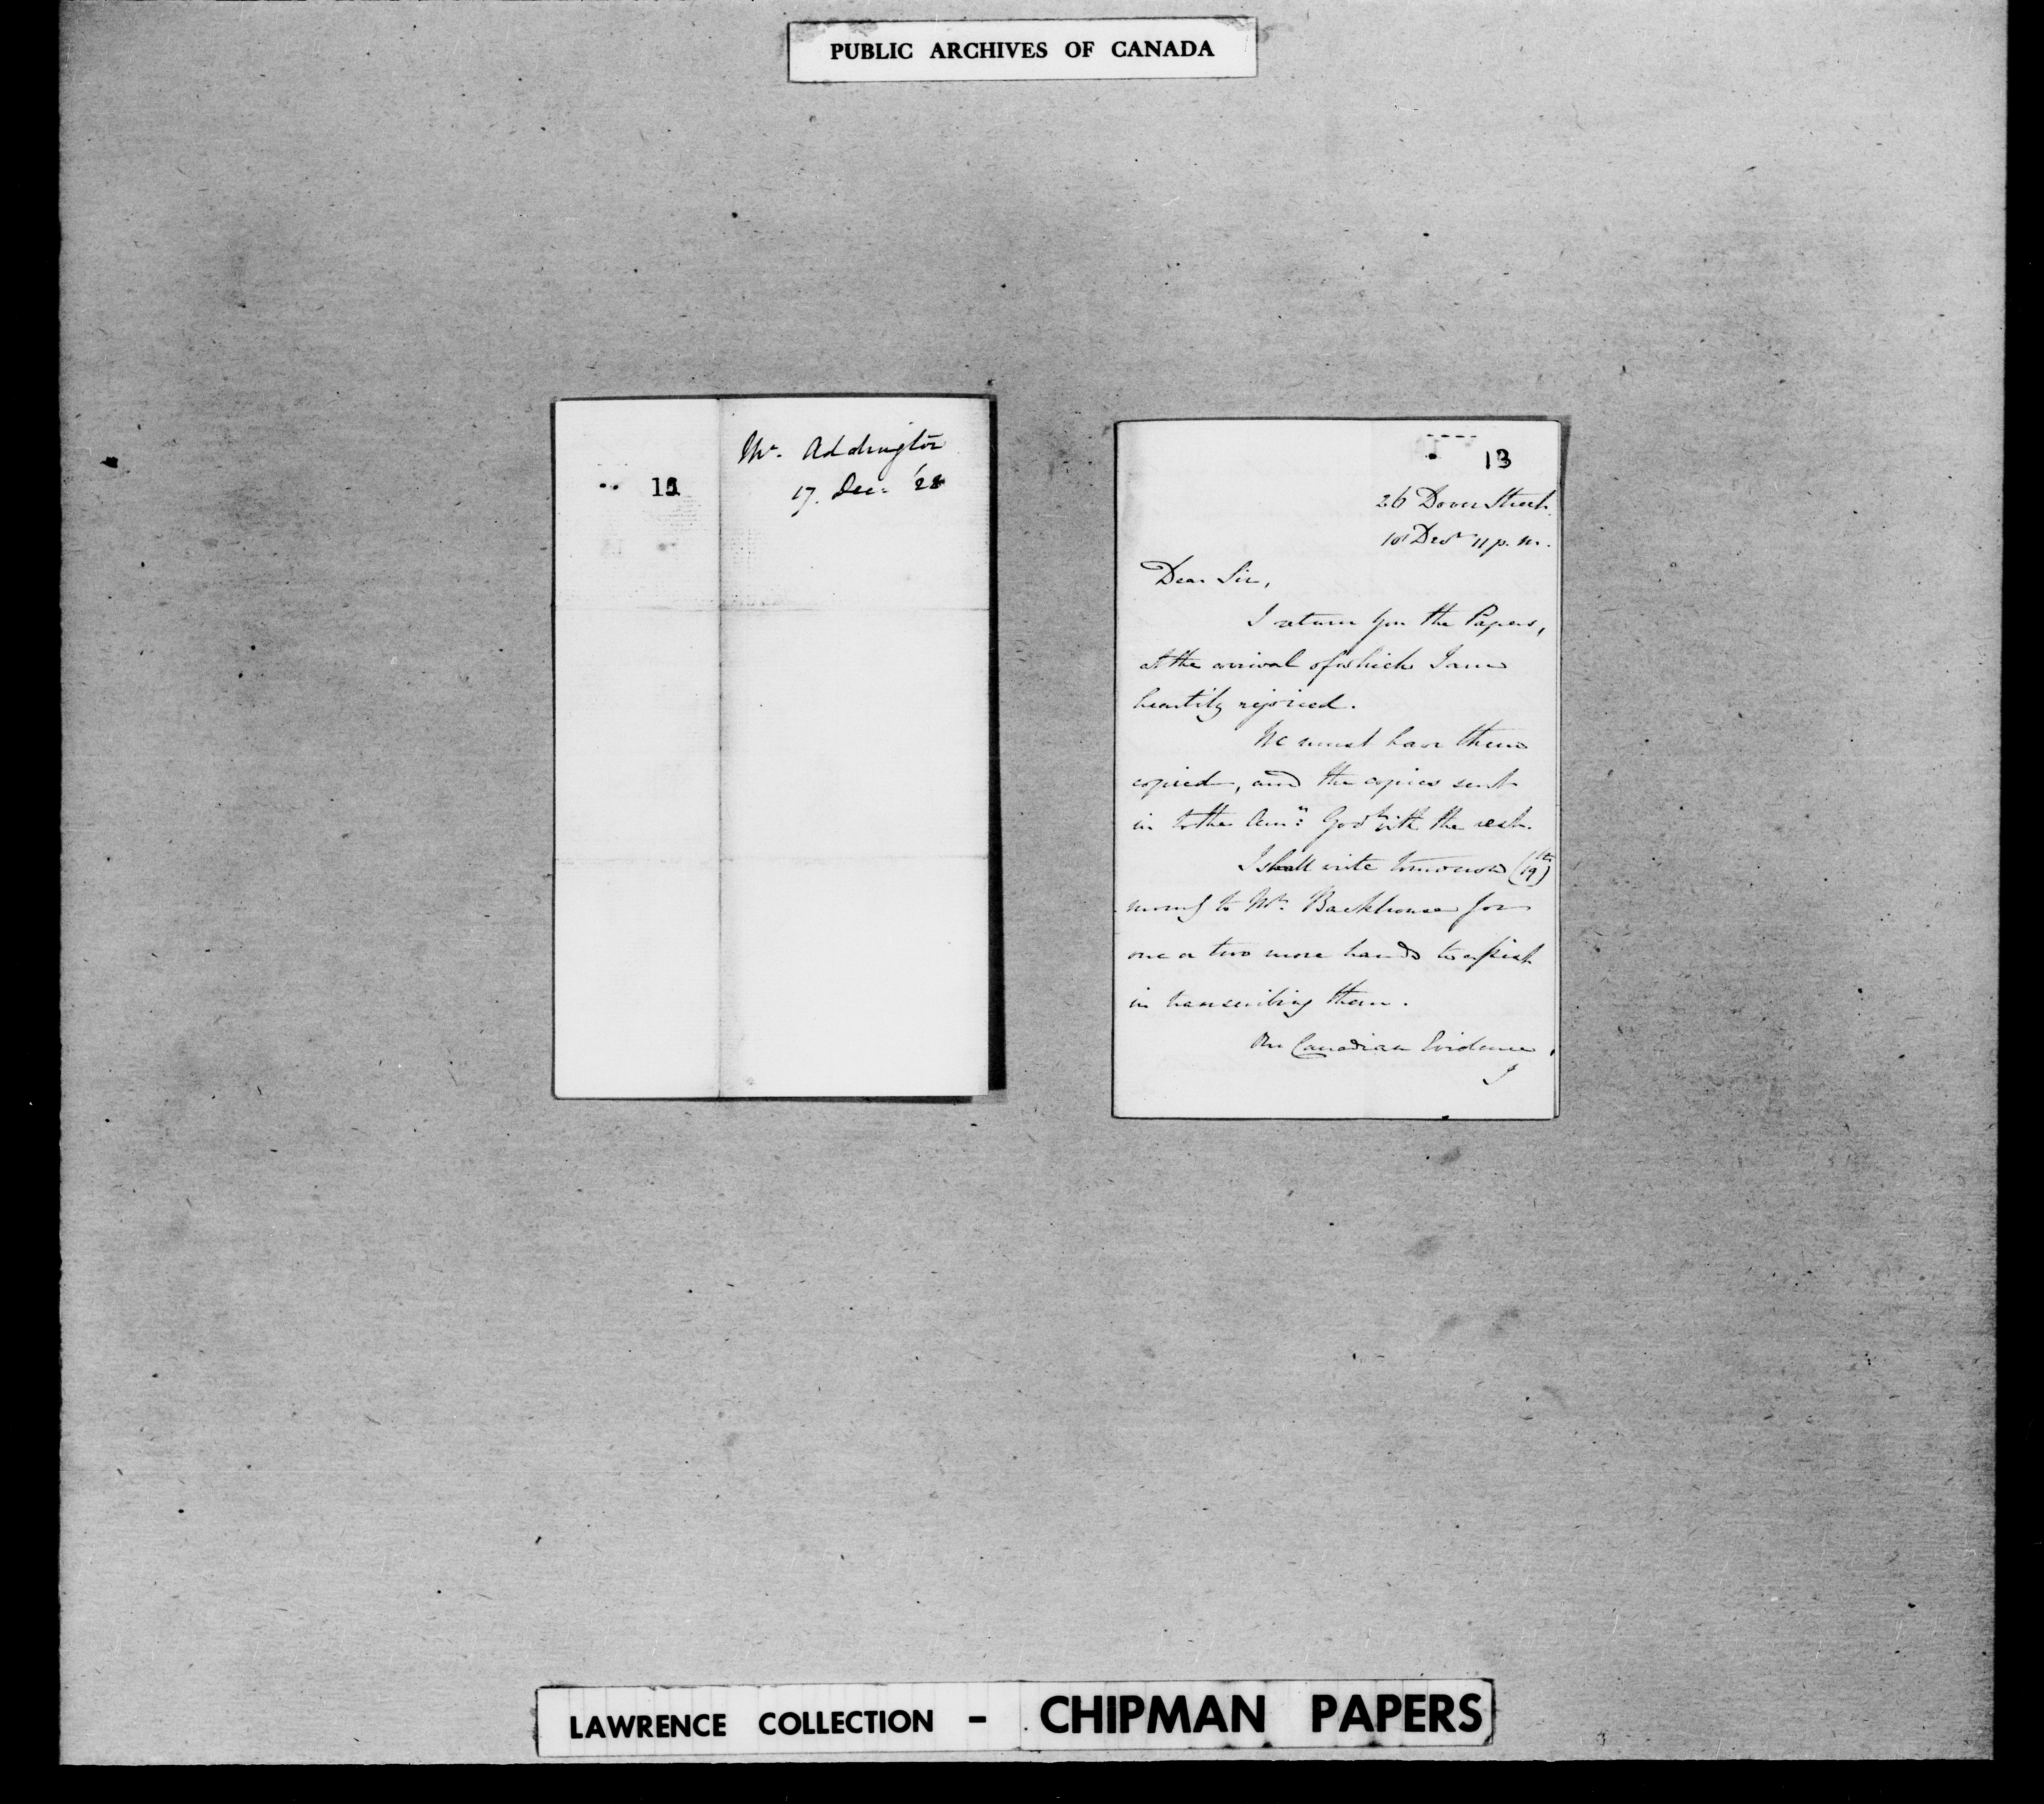 PUBLIC ARCHIVES OF CANADA
Mr. Addington
17. Dec: '28
13
26 Dover Street.
18 Decr 11 p. m.
Dear Sir,
I return you the Papers,
at the arrival of which I am
heartily rejoiced.
We must have them
copied, and the copies sent
in to the Amn: Govt with the rest.
I shall write tomorrow (19th)
morng to Mr. Backhouse for
one or two more hands to assist
in transcribing them.
Canadian Evidence,
I
LAWRENCE COLLECTION - CHIPMAN PAPERS